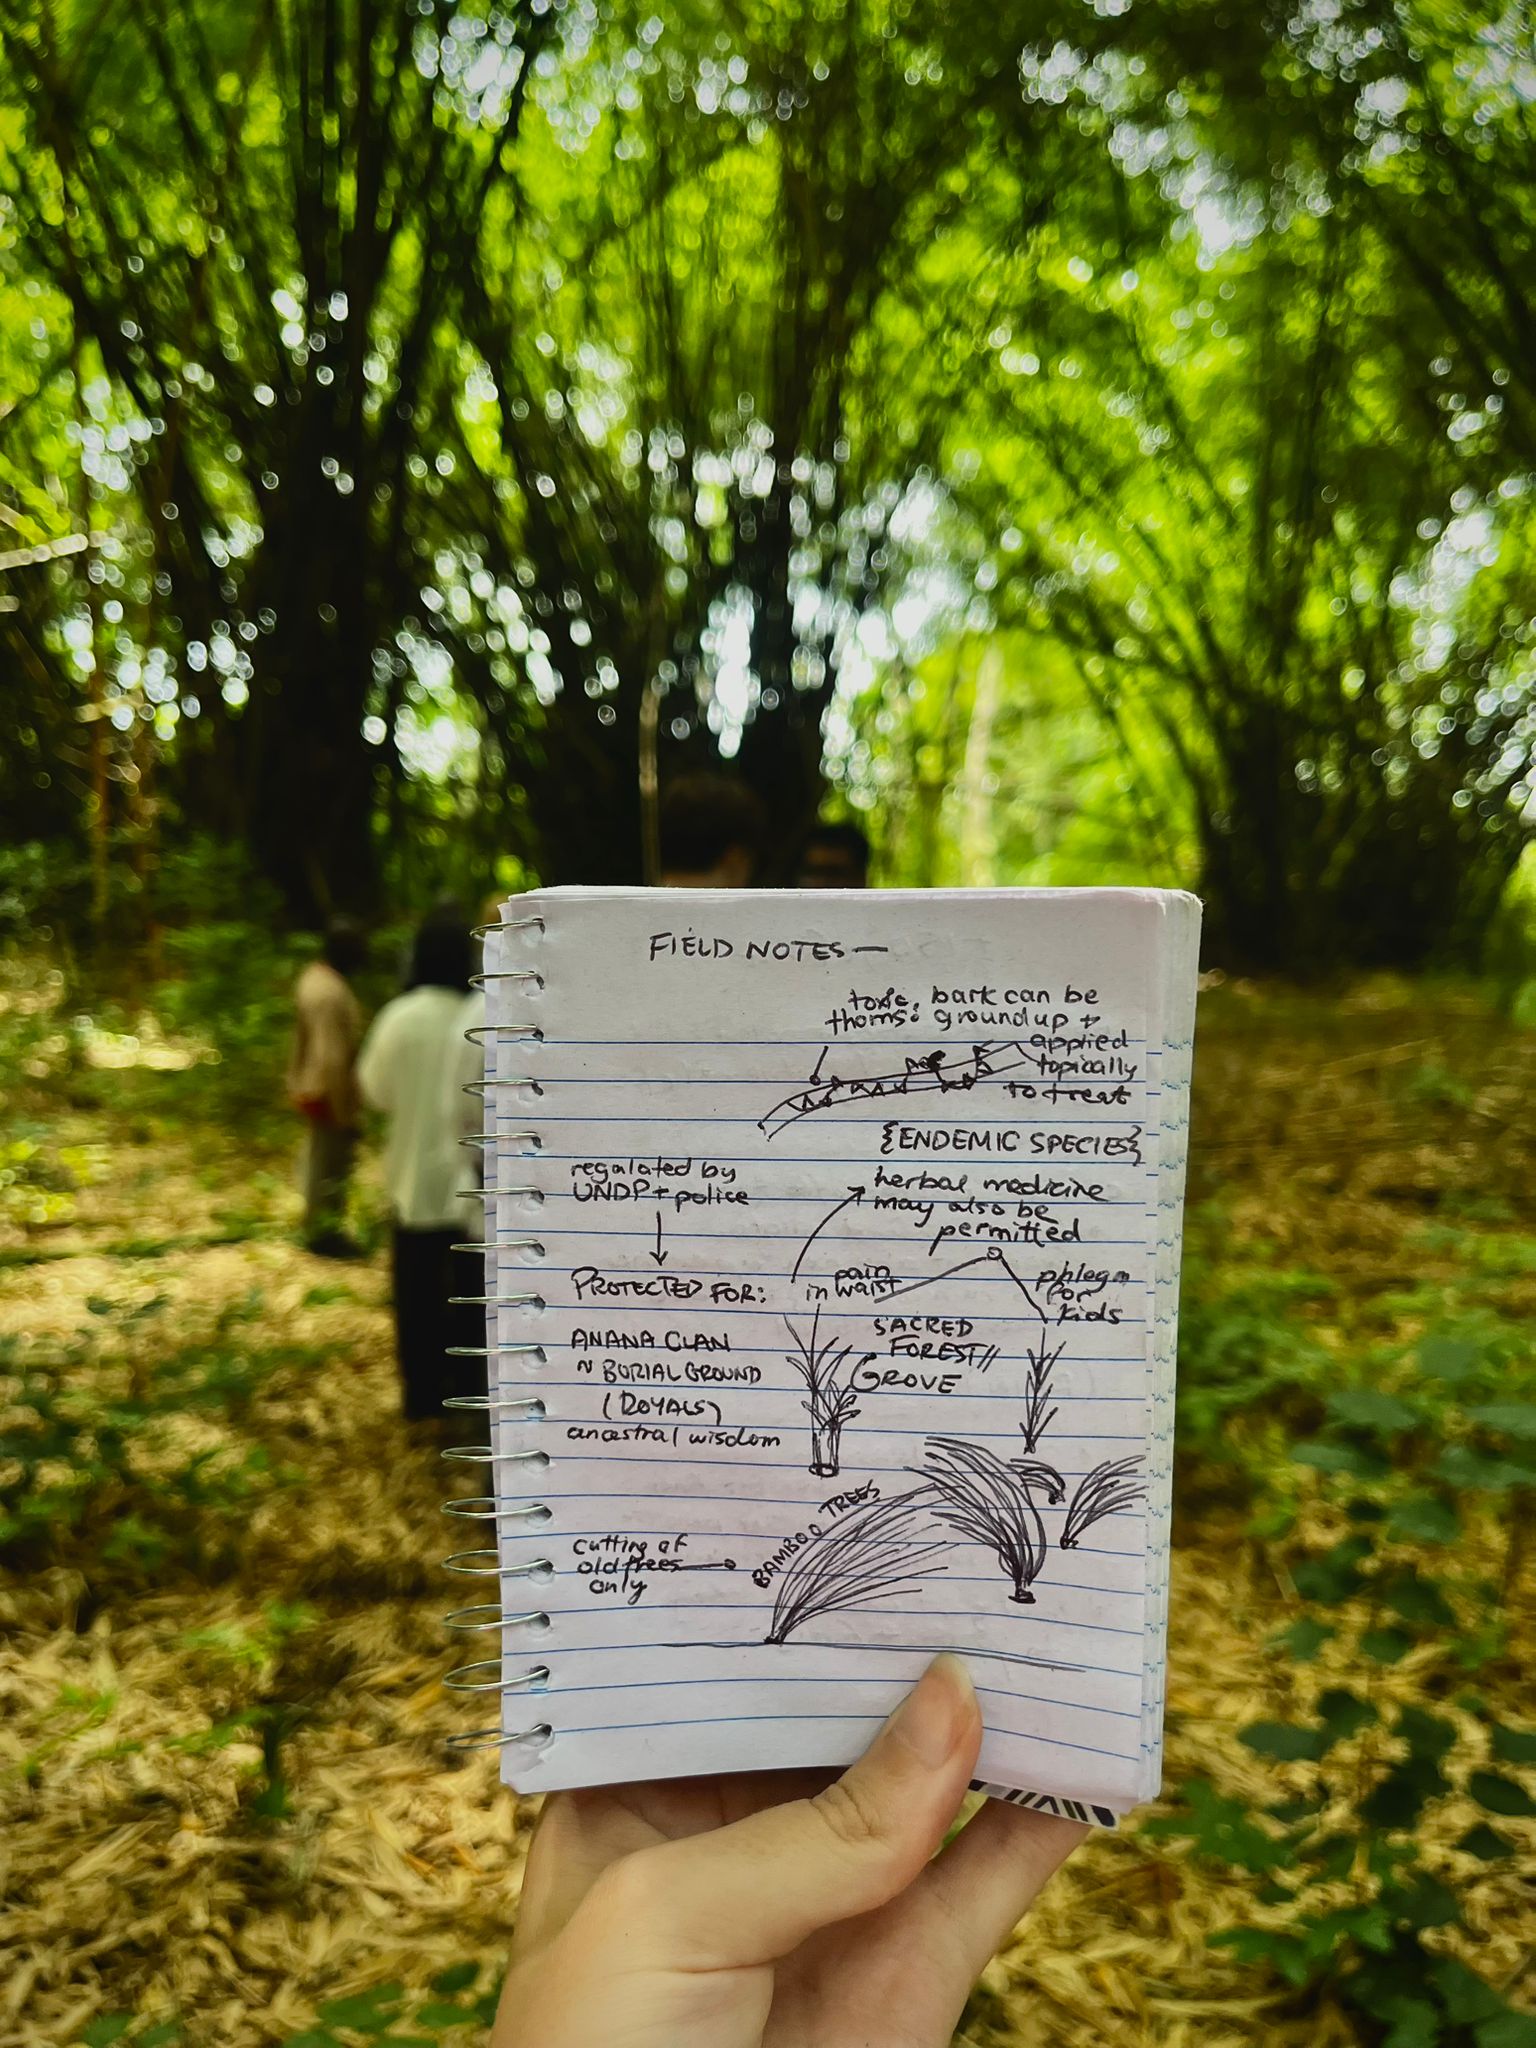 FIELD NOTES —
toxic thorns:
bark can be
ground up +
applied
topically
to treat
{ENDEMIC SPECIES}
regulated by
UNDP + police
herbal medicine
may also be
permitted
PROTECTED FOR:
pain
in waist
phlegm
for
kids
ANANA CLAN
~ BURIAL GROUND
(ROYALS)
ancestral wisdom
SACRED
FOREST//
GROVE
BAMBOO TREES
cutting of
old trees
only